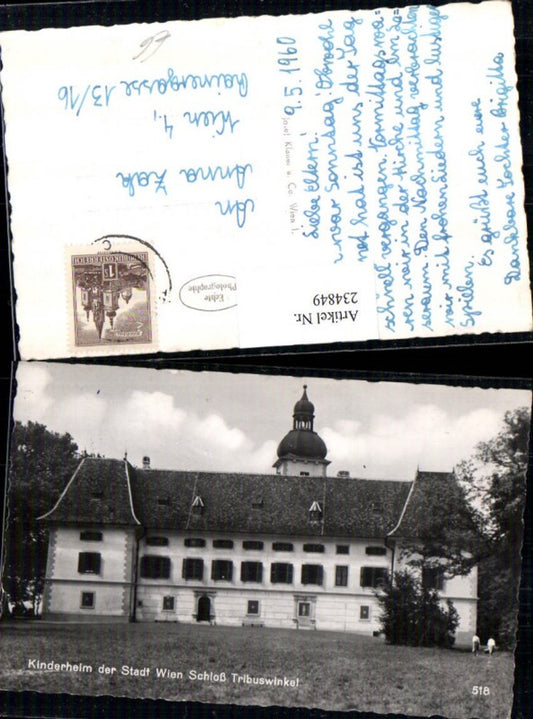 66
An
Anna Zak
Wien 4.,
Rainergasse 13/16
9.5.1960
Liebe Eltern!
war Sonntag! Obwohl
hat ist uns der Tag
schnell vergangen. Vormittags wa=
ren wir in der Kirche und im
Den Nachmittag verbrachten
wir mit frohen Liedern und lustigen
Spielen.
Es grüßt euch eure
Dankbare Tochter Brigitta
Josef Klauer u. Co. Wien I.
Echte
Photographie
REPUBLIK ÖSTERREICH
1
Artikel Nr.
234849
Kinderheim der Stadt Wien Schloß Tribuswinkel
518